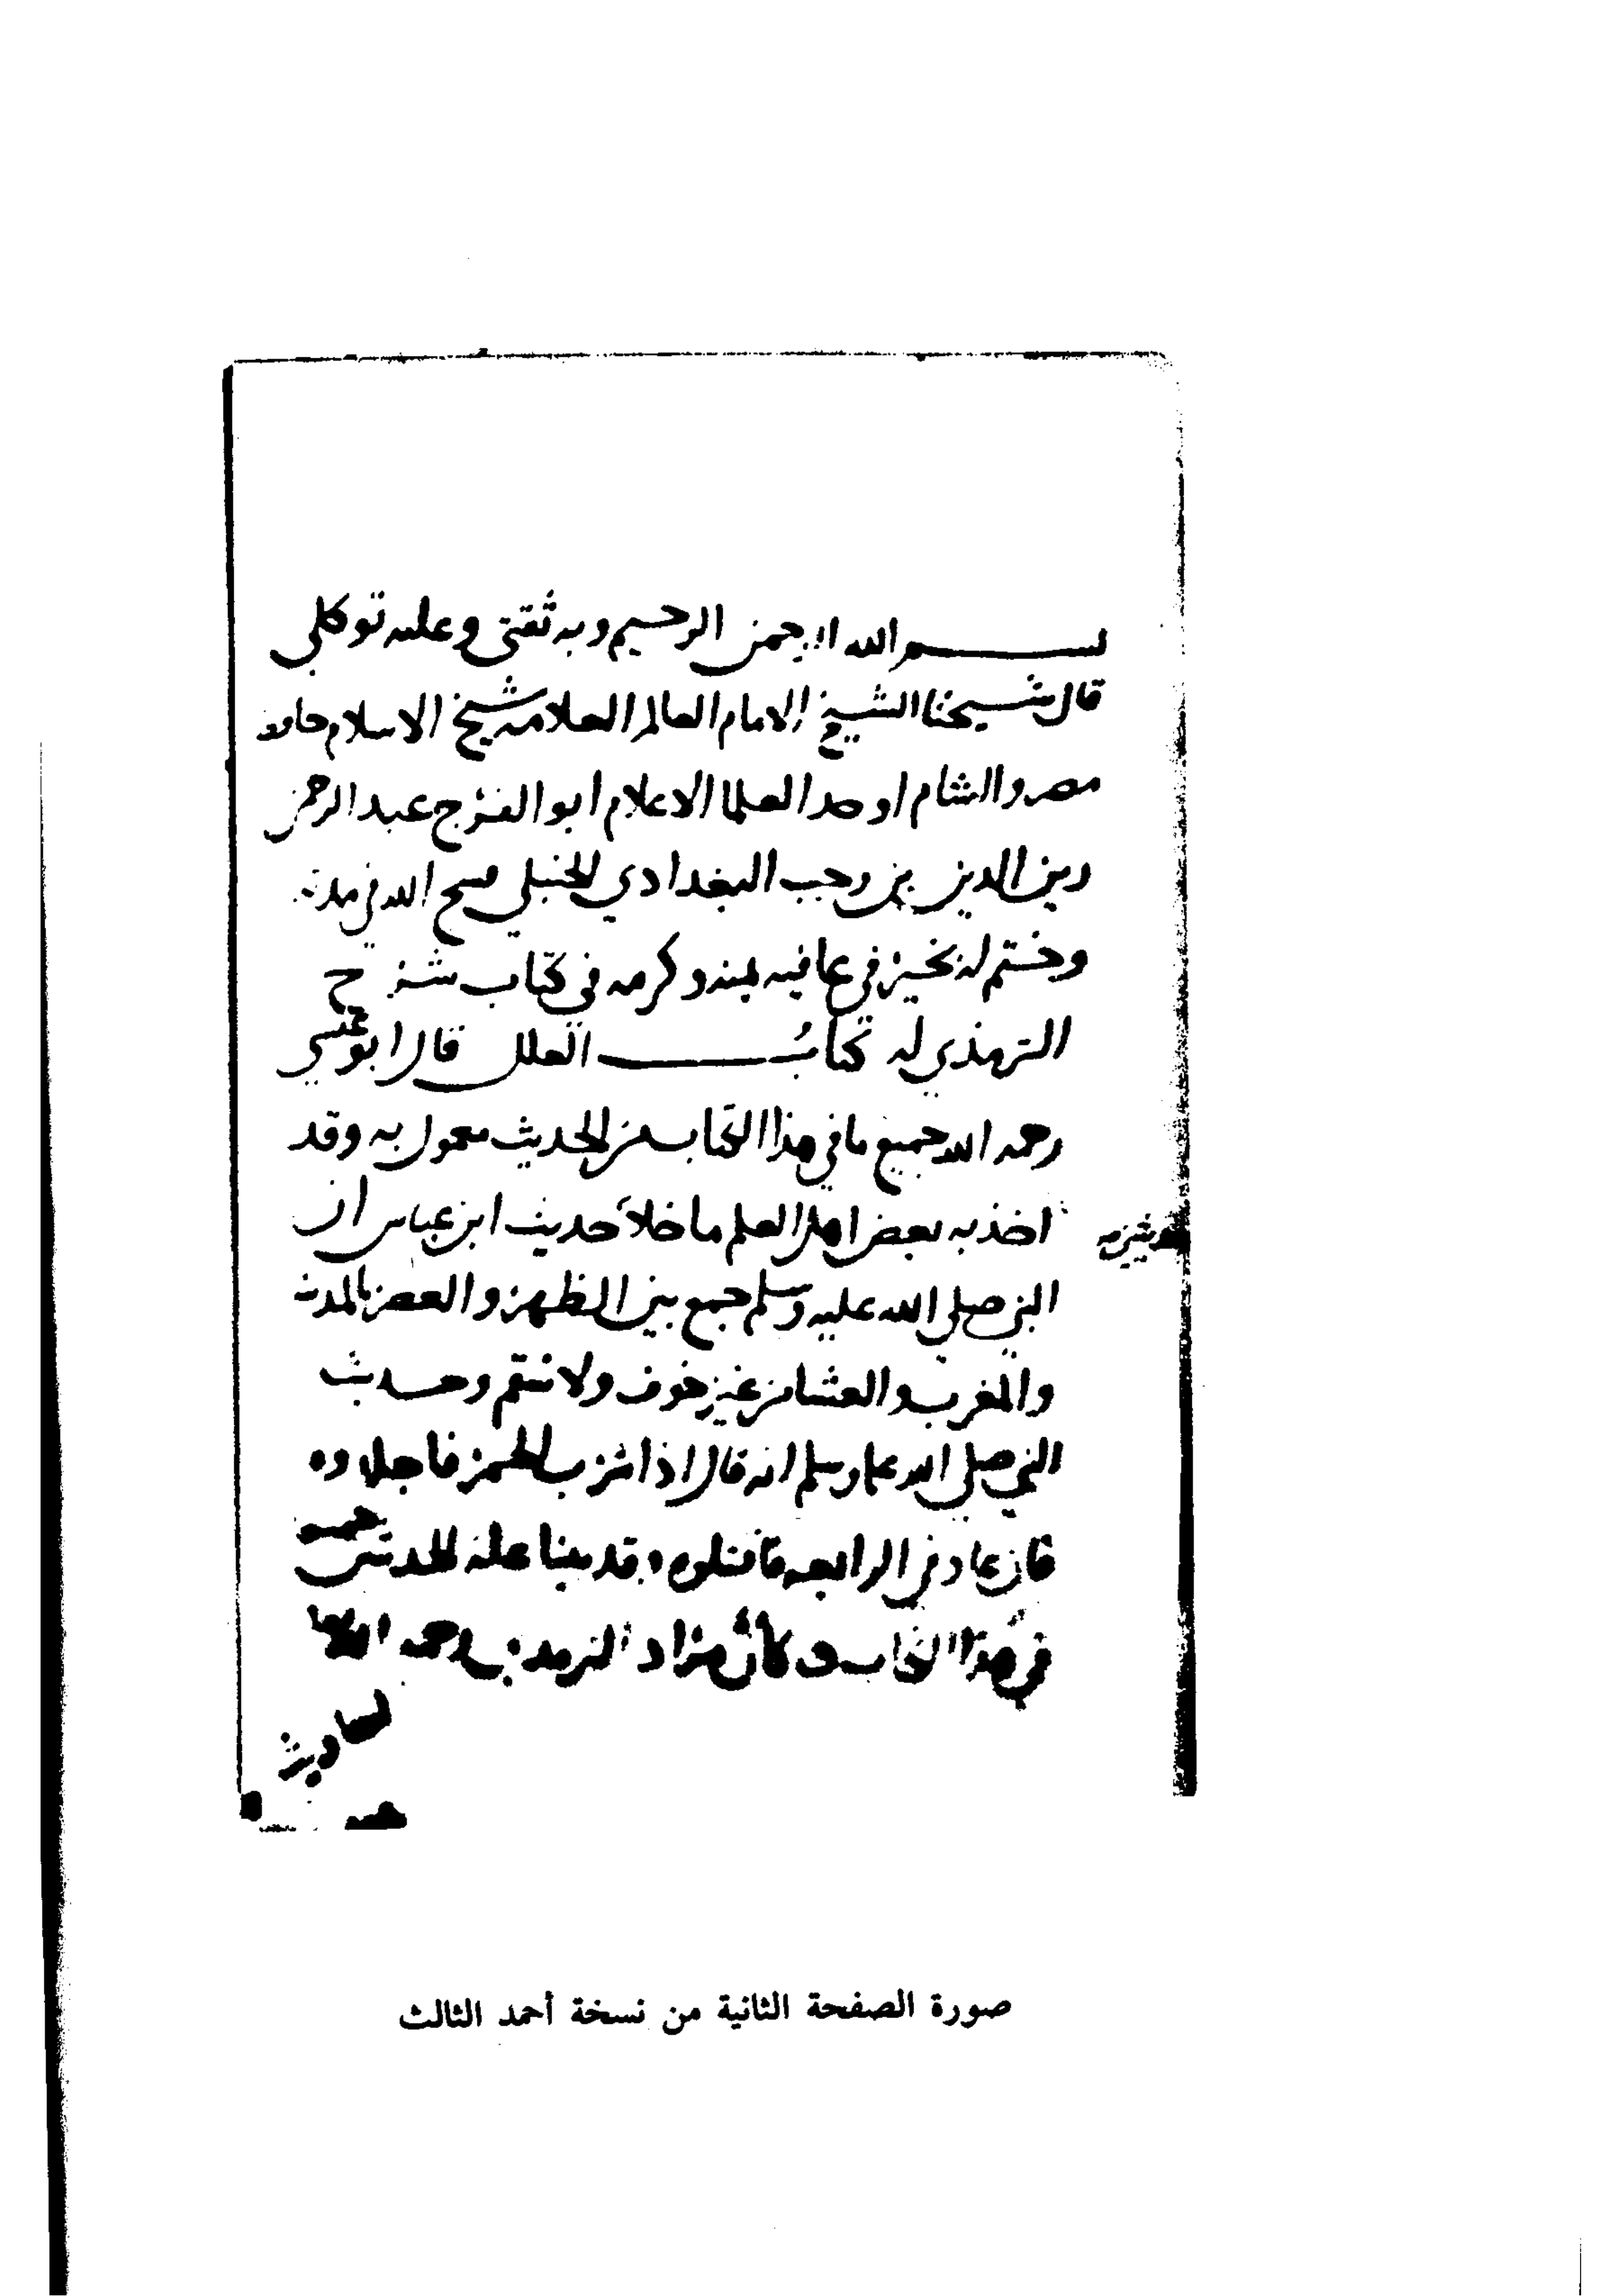 بسم الله الرحمن الرحيم وبه ثقتي وعليه توكلي
قال شيخنا الشيخ الامام العالم العلامة شيخ الاسلام
مصر والشام اوحد العلما الاعلام ابو الفرج عبد الرحمن
زين الدين بن رجب البغدادي الحنبلي فسح الله في مدته
وختم له بخير في عافيه بمنه وكرمه في كتاب شرح
الترمذي له كتاب العلل قال ابو عيسي
رحمه الله جميع ما في هذا الكتاب من الحديث معمول به وقد
اخذ به بعض اهل العلم ما خلا حديث ابن عباس ان
النبي صلي الله عليه وسلم جمع بين الظهر والعصر بالمدينة
والمغرب والعشا من غير خوف ولا سقم وحديث
النبي صلي الله عليه وسلم انه قال اذا شرب الخمر فاجلدوه
فان عاد في الرابعه فاقتلوه وقد بينا علة الحديثين جميعا
في هذا الكتاب كأن مراد الترمذي رحمه الله
احاديث
صورة الصفحة الثانية من نسخة أحمد الثالث